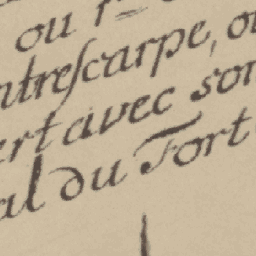 ou r
ntreſcarpe, ou
ert avec son
al du Fort